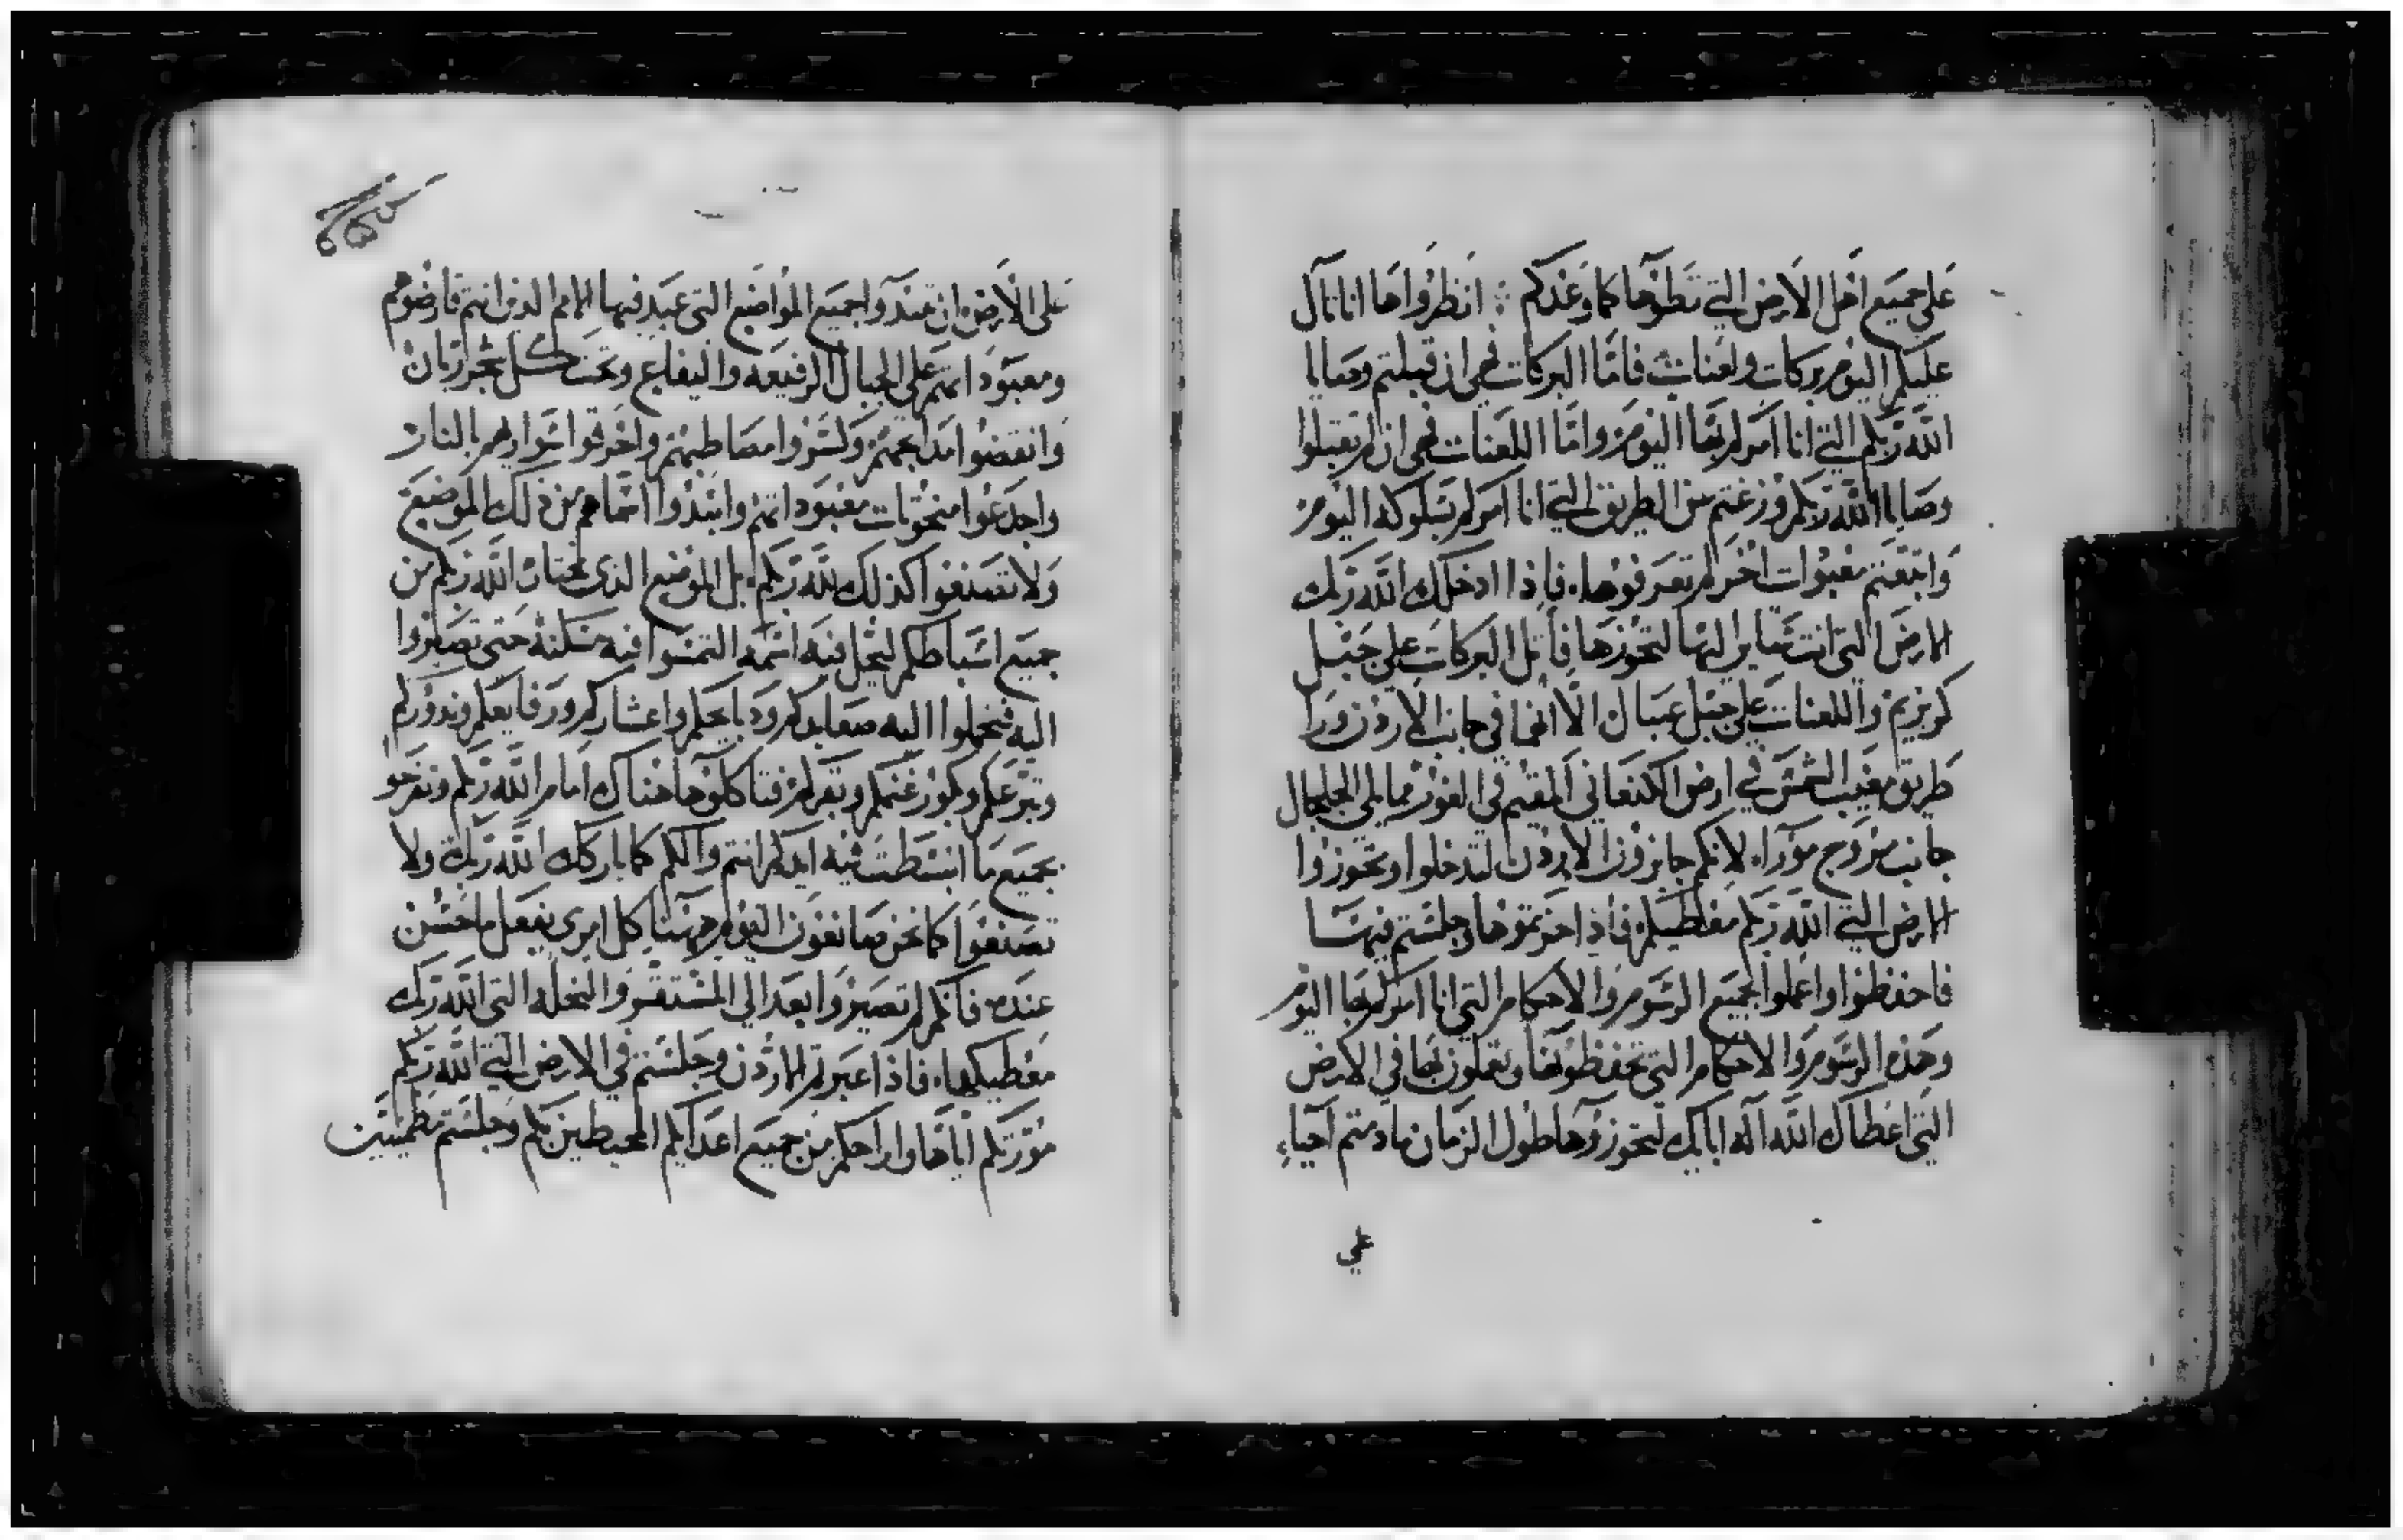 على جميع اهل الارض التي تطؤها كما وعدكم : انظروا ها انا تال
عليكم اليوم بركات ولعنات فاما البركات فهي ان قبلتم وصايا
الله ربكم التي انا آمركم بها اليوم واما اللعنات فهي ان لم تقبلوا
وصايا الله ربكم وزغتم من الطريق التي انا آمركم بسلوكه اليوم
واتبعتم معبودات اخر لم تعرفوها فاذا ادخلك الله ربك
الارض التي انت صاير اليها لتحوزها فاتل البركات على جبل
كريزيم واللعنات على جبل عيبال الا انهما في جانب الاردن ورا
طريق مغيب الشمس في ارض الكنعاني المقيم في الغور مما يلي الجلجال
جانب مروج مورا لانكم جايزون الاردن لتدخلوا وتحوزوا
الارض التي الله ربكم معطيكم فاذا حزتموها وجلستم فيها
فاحفظوا واعملوا بجميع الرسوم والاحكام التي انا آمركم بها اليوم
وهذه الرسوم والاحكام التي تحفظونها وتعملون بها في الارض
التي اعطاك الله اله ابايك لتحوزوها طول الزمان مادمتم احياء
على
على الارض ان تبيدوا جميع المواضع التي عبد فيها الامم الذين انتم قارضوهم
ومعبوداتهم على الجبال الرفيعه واليفاع وتحت كل شجر ريان
وانقضوا مذابحهم وكسروا مصاطبهم واحرقوا سواريهم بالنار
واجدعوا منحوتات معبوداتهم وابيدوا اسماهم من ذلك الموضع
ولا تصنعوا كذلك لله ربكم بل الموضع الذي يختار الله ربكم من
جميع اسباطكم ليحل فيه اسمه التمسوا فيه مسكنه حتى تصيروا
اليه فتحملوا اليه صعايدكم وذبايحكم واعشاركم ورفايعكم ونذوركم
وتبرعكم وبكور غنمكم وبقركم فتاكلونها هناك امام الله ربكم وتفرحوا
بجميع ما انبسطت فيه ايديكم انتم وآلكم كما باركك الله ربك ولا
تصنعوا كما نحن صانعون اليوم ههنا كل امرى يفعل ما حسن
عنده فانكم لم تصيروا بعد الى المستقر والنحله التي الله ربك
معطيكها فاذا عبرتم الاردن وجلستم في الارض التي الله ربكم
مورثكم اياها واراحكم من جميع اعدايكم المحيطين بكم وجلستم مطمينين